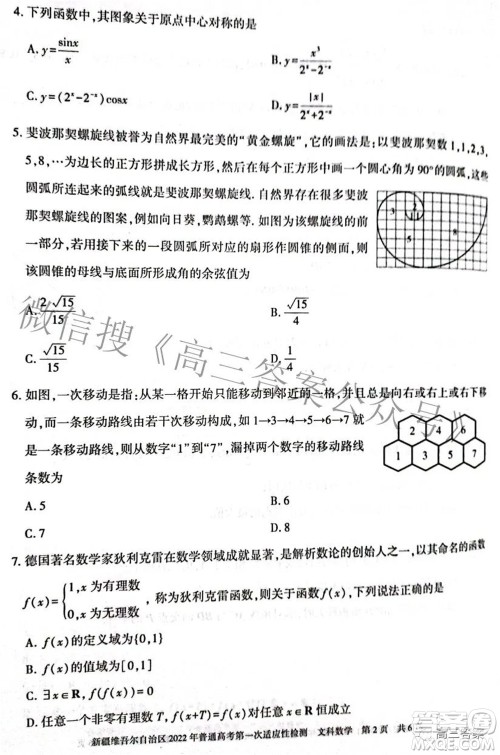 4. 下列函数中,其图象关于原点中心对称的是
A. y=sinx/x
B. y=x³/(2ˣ-2⁻ˣ)
C. y=(2ˣ-2⁻ˣ)cosx
D. y=|x|/(2ˣ+2⁻ˣ)
5. 斐波那契螺旋线被誉为自然界最完美的“黄金螺旋”,它的画法是:以斐波那契数1,1,2,3,
5,8,…为边长的正方形拼成长方形,然后在每个正方形中画一个圆心角为90°的圆弧,这些
圆弧所连起来的弧线就是斐波那契螺旋线.自然界存在很多斐波
那契螺旋线的图案,例如向日葵、鹦鹉螺等.右图为该螺旋线的前
一部分,若用接下来的一段圆弧所对应的扇形作圆锥的侧面,则
该圆锥的母线与底面所形成角的余弦值为
3
1
1
5
8
A. 2√15/15
B. √15/4
C. √15/15
D. 1/4
6. 如图,一次移动是指:从某一格开始只能移动到邻近的一格,并且总是向右或右上或右下移
动,而一条移动路线由若干次移动构成,如1→3→4→5→6→7,就
是一条移动路线,则从数字“1”到“7”,漏掉两个数字的移动路线
条数为
2 4 6
1 3 5 7
A. 5
B. 6
C. 7
D. 8
7. 德国著名数学家狄利克雷在数学领域成就显著,是解析数论的创始人之一,以其命名的函数
f(x)={1,x为有理数
0,x为无理数
,称为狄利克雷函数,则关于函数f(x),下列说法正确的是
A. f(x)的定义域为{0,1}
B. f(x)的值域为[0,1]
C. ∃x∈R,f(f(x))=0
D. 任意x∈R,f(f(x))=1恒成立
新疆维吾尔自治区2022年普通高考第一次适应性检测 文科数学 第2页 共6
微信搜《高三答案公众号》
高三答案